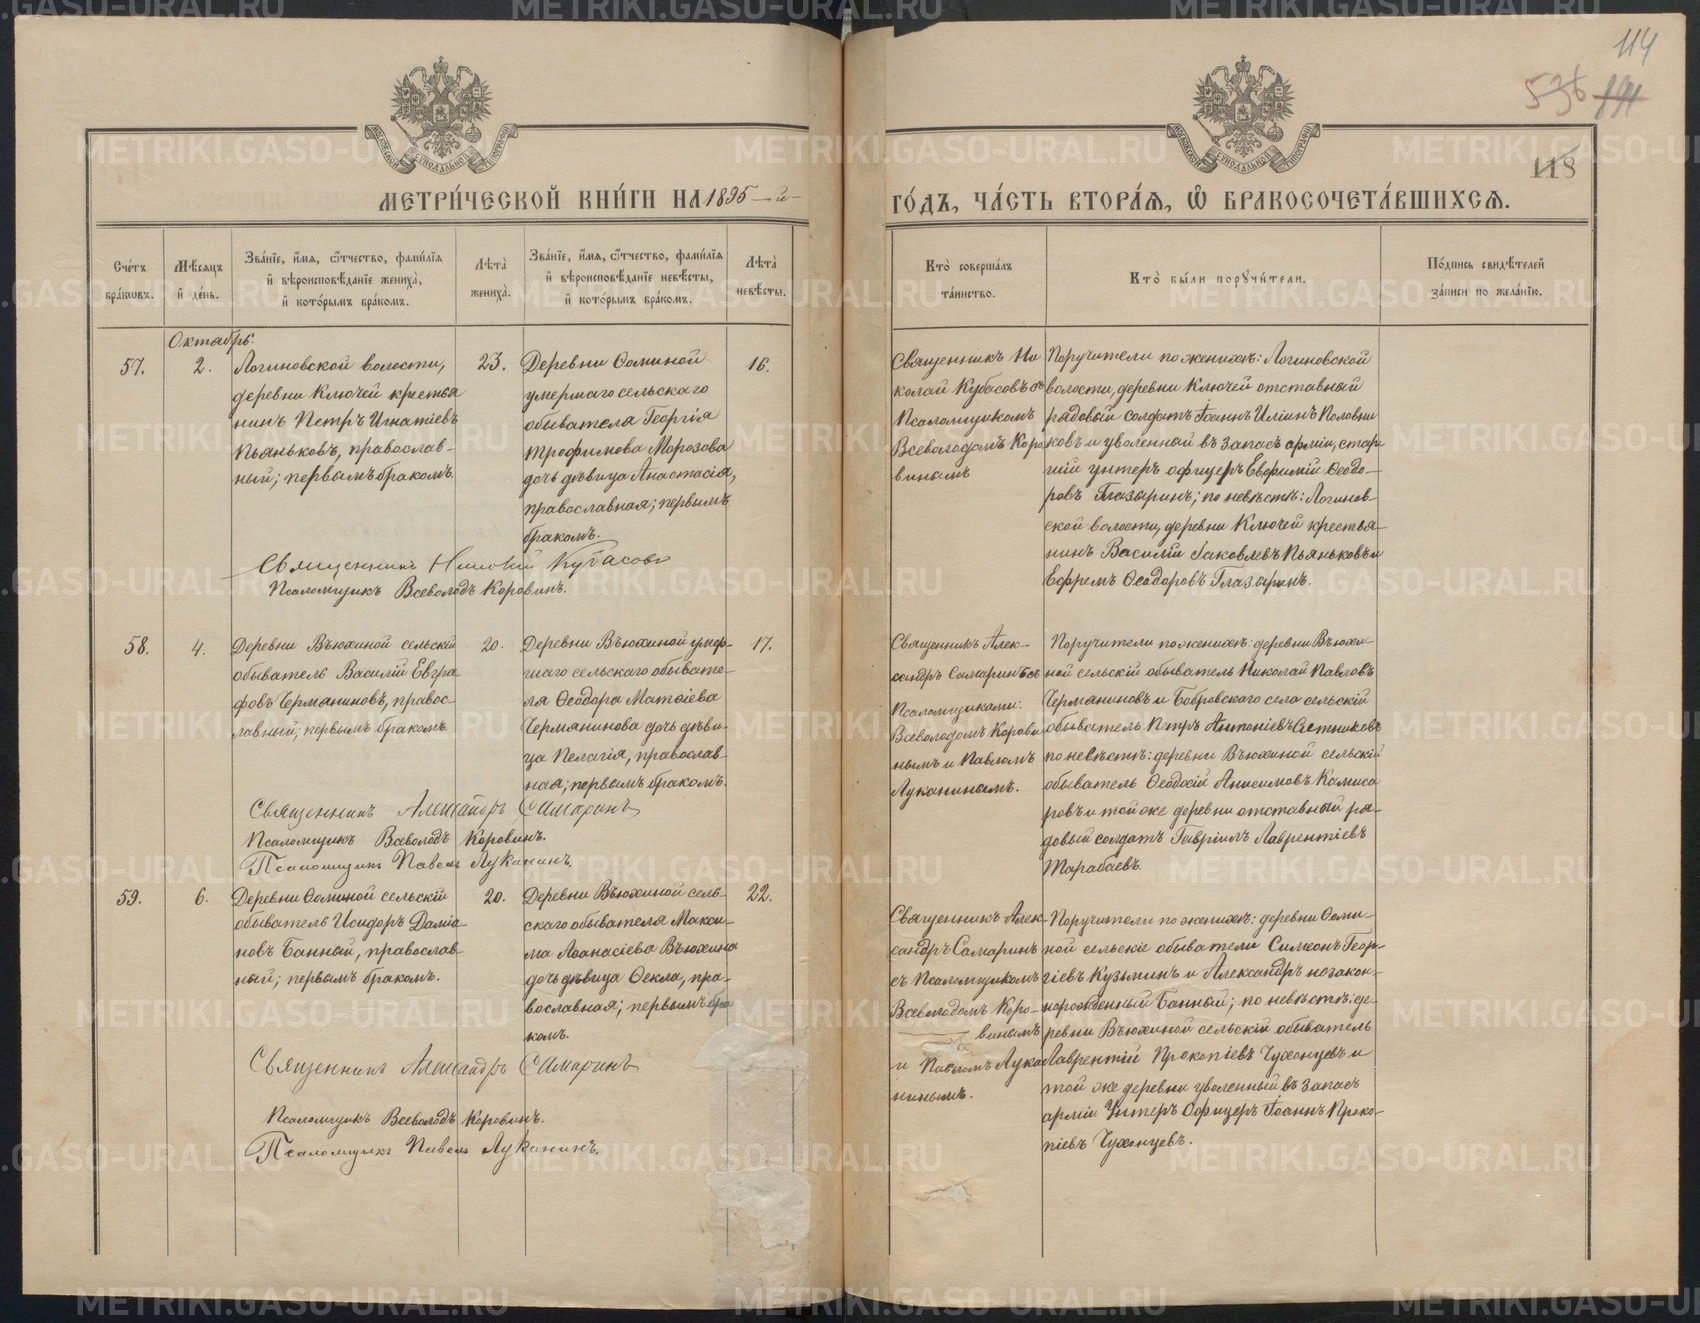 114
536
118
МЕТРИ́ЧЕСКОЙ КНИ́ГИ НА 1895-й
ГО́ДЪ, ЧА́СТЬ ВТОРА́Я, Ѽ БРАКОСОЧЕТА́ВШИХСЯ.
Сче́тъ бра́ковъ.
Мѣ́сяцъ и҆ де́нь.
Зва́нїе, и҆́мя, ѻ҆́тчество, фами́лїя
и҆ вѣроисповѣ́данїе жениха̀,
и҆ кото́рымъ бра́комъ.
Лѣта̀ жениха̀.
Зва́нїе, и҆́мя, ѻ҆́тчество, фами́лїя
и҆ вѣроисповѣ́данїе невѣ́сты,
и҆ кото́рымъ бра́комъ.
Лѣта̀ невѣ́сты.
Кто̀ соверша́лъ
та́инство.
Кто̀ бы́ли поручи́тели.
По́дпись свидѣ́телей
за́писи по жела́нїю.
Октябрь.
57.
2.
Логиновской волости,
деревни Ключей крестья
нинъ Петръ Игнатіевъ
Пьяньковъ, православ-
ный; первымъ бракомъ.
23.
Деревни Ѳоминой
умершаго сельскаго
обывателя Георгія
Трофимова Морозова
дочь дѣвица Анастасія,
православная; первымъ
бракомъ.
16.
Священникъ Ни
колай Кубасовъ съ
Псаломщикомъ
Всеволодомъ Коро
винымъ
Поручители по женихѣ: Логиновской
волости, деревни Ключей отставный
рядовый солдатъ Іоаннъ Иліинъ Половни
ковъ и уволенный въ запасъ арміи, стар
шій унтеръ офицеръ Евфимій Ѳеодо-
ровъ Глазыринъ; по невѣстѣ: Логинов-
ской волости, деревни Ключей крестья-
нинъ Василій Іаковлевъ Пьяньковъ и
Ефремъ Ѳеодоровъ Глазыринъ.
Священникъ Николай Кубасовъ
Псаломщикъ Всеволодъ Коровинъ.
58.
4.
Деревни Вьюхиной сельскій
обыватель Василій Евгра
фовъ Чермяниновъ, правос-
лавный; первымъ бракомъ.
20.
Деревни Вьюхиной умер-
шаго сельскаго обывате-
ля Ѳеодора Матѳіева
Чермянинова дочь дѣви-
ца Пелагія, православ-
ная; первымъ бракомъ.
17.
Священникъ Алек-
сандръ Самаринъ съ
Псаломщиками:
Всеволодомъ Корови
нымъ и Павломъ
Луканинымъ.
Поручители по женихѣ: деревни Вьюхи-
ной сельскій обыватель Николай Павловъ
Чермяниновъ и Бобровскаго села сельскій
обыватель Петръ Антоніевъ Ситниковъ
по невѣстѣ: деревни Вьюхиной сельскій
обыватель Ѳеодосій Анисимовъ Комиса
ровъ и той же деревни отставный ря-
довый солдатъ Гавріилъ Лаврентіевъ
Тарабаевъ.
Священникъ Александръ Самаринъ
Псаломщикъ Всеволодъ Коровинъ.
Псаломщикъ Павелъ Луканинъ.
59.
6.
Деревни Ѳоминой сельскій
обыватель Исидоръ Даміа-
новъ Банный, православ-
ный; первымъ бракомъ.
20.
Деревни Вьюхиной сель-
скаго обывателя Макси-
ма Аѳанасіева Вьюхина
дочь дѣвица Ѳекла, пра-
вославная; первымъ бра
комъ.
22.
Священникъ Алек-
сандръ Самаринъ
съ Псаломщикомъ
Всеволодомъ Коро-
винымъ
и Павломъ Лука
нинымъ.
Поручители по женихѣ: деревни Ѳоми-
ной сельскіе обыватели Симеонъ Геор-
гіевъ Кузьминъ и Александръ незакон-
норожденный Банный; по невѣстѣ: де-
ревни Вьюхиной сельскій обыватель
Лаврентій Прокопіевъ Чухонцевъ и
той же деревни уволенный въ запасъ
арміи Унтеръ Офицеръ Іоаннъ Проко-
піевъ Чухонцевъ.
Священникъ Александръ Самаринъ
Псаломщикъ Всеволодъ Коровинъ.
Псаломщикъ Павелъ Луканинъ.
METRIKI.GASO-URAL.RU